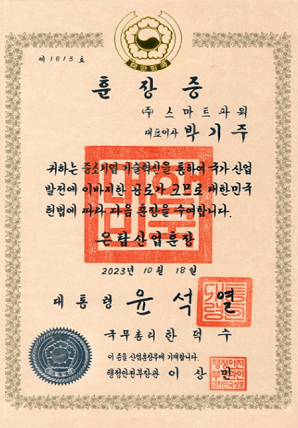 제 1813 호
대한민국
훈장증
(주) 스마트파워
대표이사 박기주
귀하는 중소기업 기술혁신을 통하여 국가 산업
발전에 이바지한 공로가 크므로 대한민국
헌법에 따라 다음 훈장을 수여합니다.
은탑산업훈장
2023년 10월 18일
대통령 윤석열
국무총리 한덕수
이 증을 산업훈장부에 기재합니다.
행정안전부장관 이상민